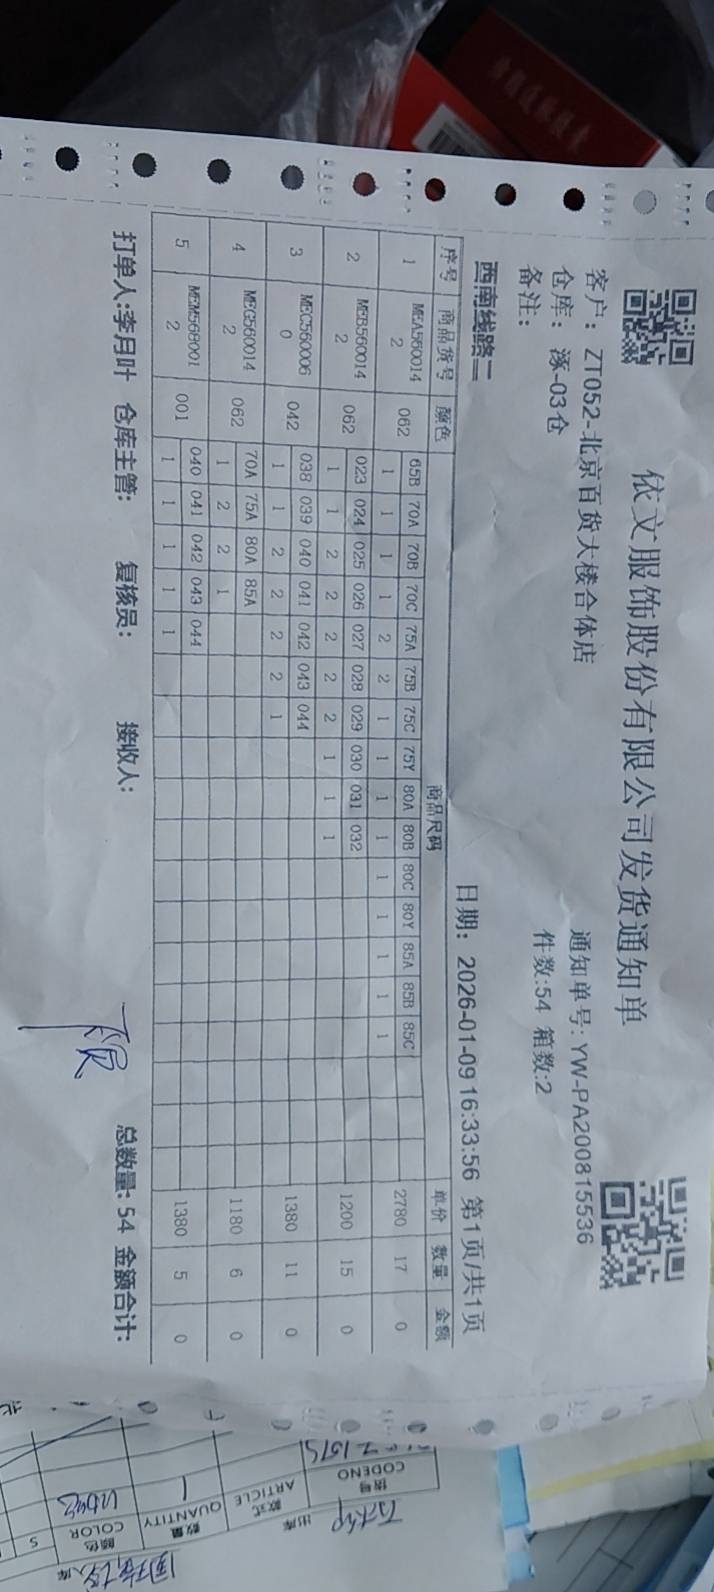 依文服饰股份有限公司发货通知单
客户: ZT052-北京百货大楼合体店 通知单号: YW-PA200815536
仓库: 涿-03仓 件数:54 箱数:2
备注:
西南线路二 日期: 2026-01-09 16:33:56 第1页/共1页
序号 商品货号 颜色 商品尺码 单价 数量 金额
1 MEA5600142 062 65B 70A 70B 70C 75A 75B 75C 75Y 80A 80B 80C 80Y 85A 85B 85C 2780 17 0
1 1 1 1 2 2 1 1 1 1 1 1 1 1 1
2 MEB5600142 062 023 024 025 026 027 028 029 030 031 032 1200 15 0
1 1 2 2 2 2 2 1 1 1
3 MEC5600060 042 038 039 040 041 042 043 044 1380 11 0
1 1 2 2 2 2 1
4 MEG5600142 062 70A 75A 80A 85A 1180 6 0
1 2 2 1
5 MEM5680012 001 040 041 042 043 044 1380 5 0
1 1 1 1 1
打单人:李月叶 仓库主管: 复核员: 接收人: 总数量: 54 金额合计:
出库
货号
CODENO
款式
ARTICLE
数量
QUANTITY
1
颜色
COLOR
S
入库